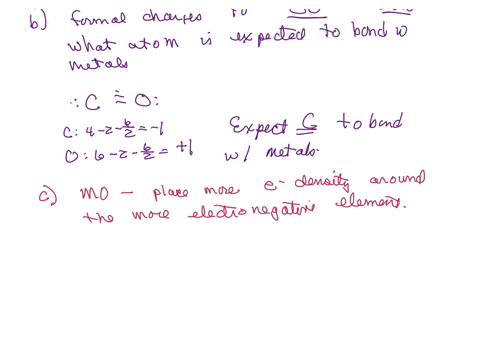 b) formal charges to CO
what atom is expected to bond w
metals
:C≡O:
C: 4-2-6/2=-1
O: 6-2-6/2=+1
Expect C to bond
w/ metals.
c) MO - place more e- density around
the more electronegative element.